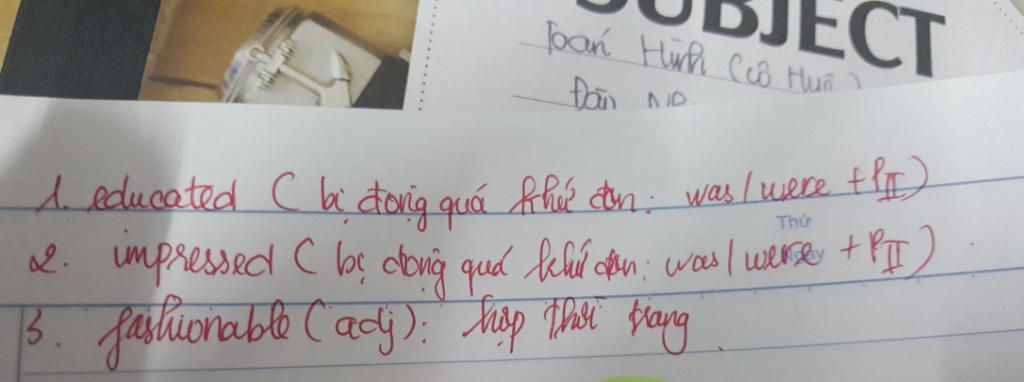 SUBJECT
Toán Hình (cô Huê)
1. educated ( bị động quá khứ đơn: was/were + PII)
Thứ
2. impressed ( bị động quá khứ đơn: was/were + PII)
Ngày
3. fashionable (adj): hợp thời trang